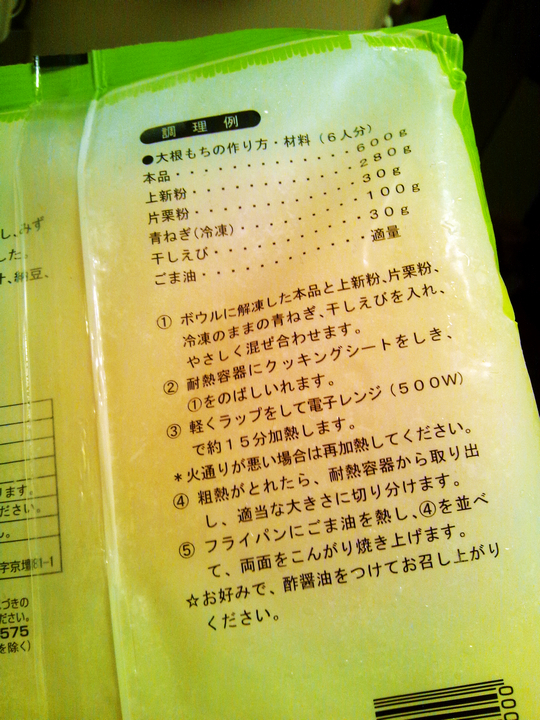 し、みず
した。
け、納豆、
ります。
ださい。
ん。
字京増81-1
づきの
ださい。
575
を除く)
調理例
●大根もちの作り方・材料（6人分）
本品・・・・・・・・・・・・600g
上新粉・・・・・・・・・・・280g
片栗粉・・・・・・・・・・・30g
青ねぎ(冷凍)・・・・・・・・100g
干しえび・・・・・・・・・・30g
ごま油・・・・・・・・・・・適量
① ボウルに解凍した本品と上新粉、片栗粉、
冷凍のままの青ねぎ、干しえびを入れ、
やさしく混ぜ合わせます。
② 耐熱容器にクッキングシートをしき、
①をのばしいれます。
③ 軽くラップをして電子レンジ（500W）
で約15分加熱します。
＊火通りが悪い場合は再加熱してください。
④ 粗熱がとれたら、耐熱容器から取り出
し、適当な大きさに切り分けます。
⑤ フライパンにごま油を熱し、④を並べ
て、両面をこんがり焼き上げます。
☆お好みで、酢醤油をつけてお召し上がり
ください。